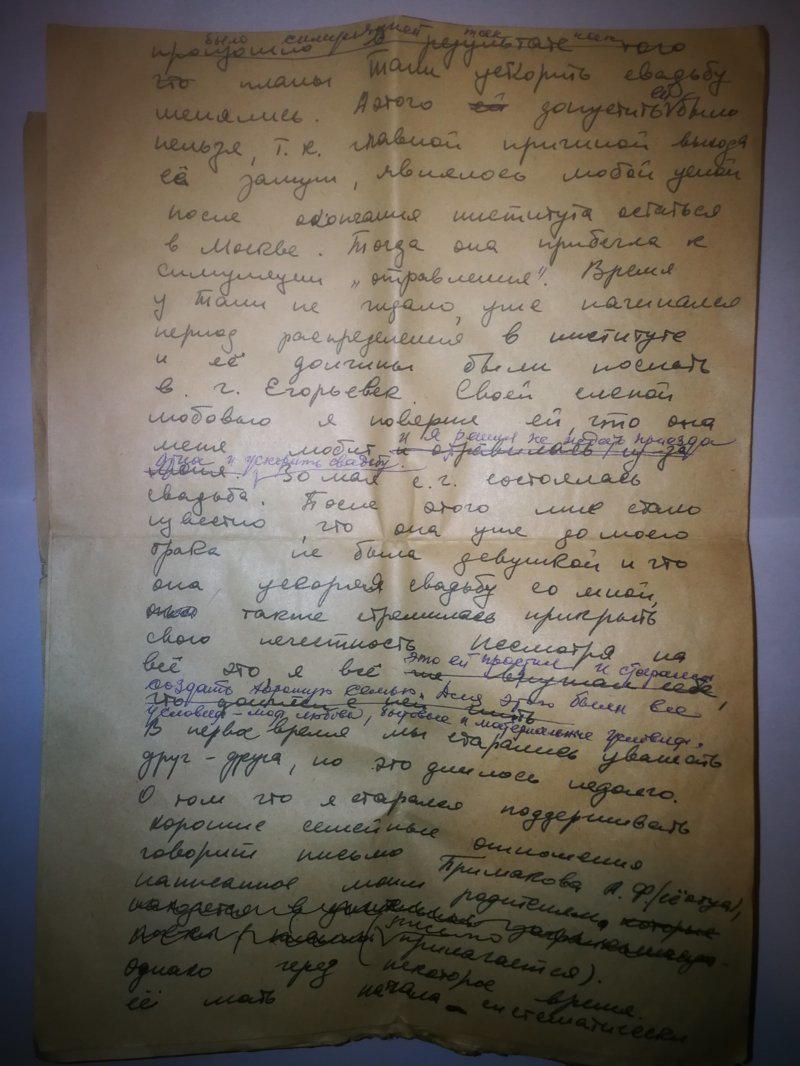 было симуляцией так как
произошло в результате того
что планы Тали ускорить свадьбу
менялись. А этого ей допустить ей было
нельзя, т.к. главной причиной выхода
её замуж, являлось любой ценой
после окончания института остаться
в Москве. Тогда она прибегла к
симуляции „отравления". Время
у Тали не ждало, уже начинался
период распределения в институте
и её должны были послать
в г. Егорьевск. Своей слепой
любовью я поверил ей, что она
меня любит и отравилась из-за
и я решил не ждать приезда
отца и ускорить свадьбу.
меня. 30 мая с.г. состоялась
свадьба. После этого мне стало
известно, что она уже до моего
брака не была девушкой и что
она, ускоряя свадьбу со мной,
также стремилась прикрыть
свою нечестность. Несмотря на
всё это я всё же внушал себе,
это ей простил и старался
создать хорошую семью. Для этого были все
что должен с ней жить
условия – моя любовь, бытовые и материальные условия.
В первое время мы старались уважать
друг-друга, но это длилось недолго.
О том что я старался поддерживать
хорошие семейные отношения
говорит письмо Примакова А.Ф. (её отца),
написанное моим родителям, которые
находится в
письмо
прилагается).
Однако через некоторое время
её мать начала систематически